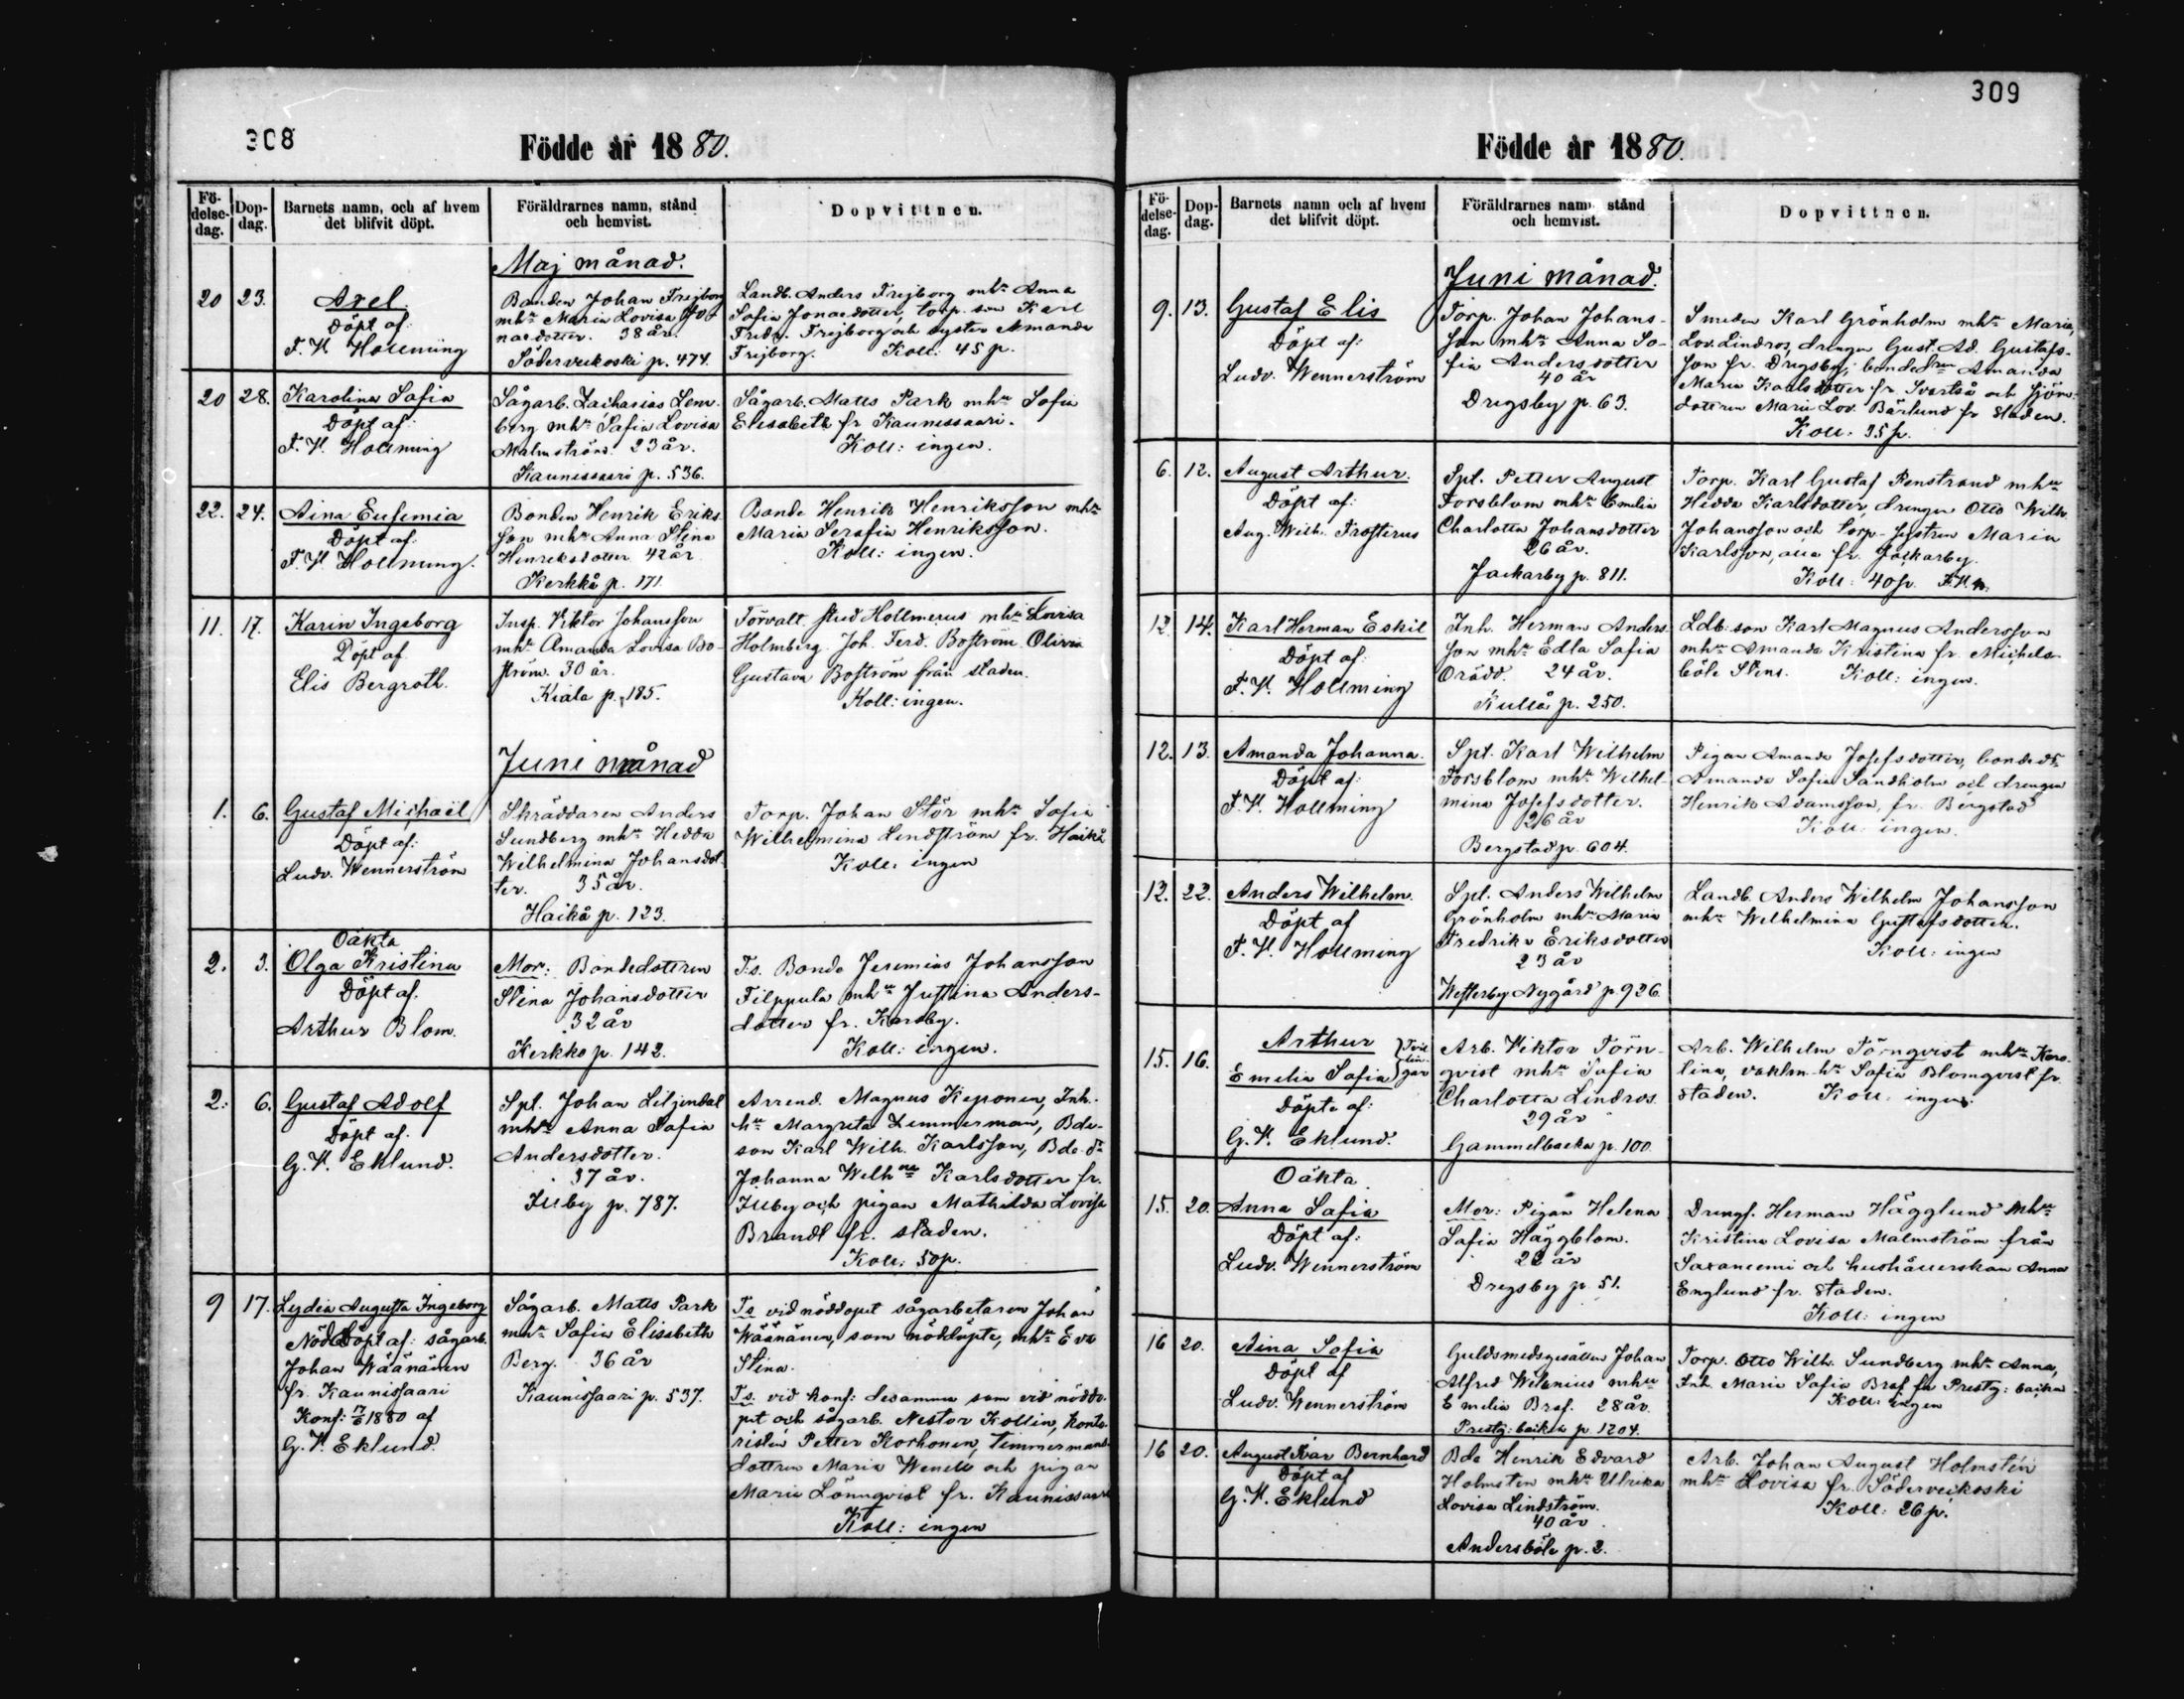 308
Födde år 1880.
Fö-
delse-
dag.
Dop-
dag.
Barnets namn, och af hvem
det blifvit döpt.
Föräldrarnes namn, stånd
och hemvist.
Dopvittnen.
Maj månad.
20 23.
Axel.
Döpt af:
F. W. Hollming
Bonden Johan Frejborg
mhu Maria Lovisa Jo-
nasdotter. 38 år.
Söderveckoski p. 474.
Landb. Anders Frejborg mhu Anna
Sofia Jonasdotter, torp. son Karl
Fredr. Frejborg och syster Amanda
Frejborg. Koll: 45 p.
20 28.
Karolina Sofia
Döpt af:
F. W. Hollming
Sågarb. Zacharias Lenn-
berg mhu Sofia Lovisa
Malmström. 23 år.
Kaunissaari p. 536.
Sågarb. Matts Park mhu Sofia
Elisabeth fr Kaunissaari.
Koll: ingen.
22. 24.
Aina Eufemia
Döpt af:
F. W. Hollming.
Bonden Henrik Eriks-
son mhu Anna Stina
Henriksdotter 42 år
Kerkkå p. 171.
Bonde Henrik Henriksson mhu
Maria Serafia Henriksson.
Koll: ingen.
11. 17.
Karin Ingeborg
Döpt af
Elis Bergroth.
Insp. Viktor Johansson
mhu Amanda Lovisa Bo-
ström. 30 år.
Kiala p. 185.
Förvalt. stud Hollmerus mhu Lovisa
Holmberg. Joh. Ferd. Boström Olivia
Gustava Boström från staden.
Koll: ingen.
Juni månad
1. 6.
Gustaf Michaël
Döpt af:
Ludv. Wennerström
Skräddaren Anders
Sundberg mhu Hedda
Wilhelmina Johansdot-
ter. 35 år.
Haikå p. 123.
Torp. Johan Stör mhu Sofia
Wilhelmina Lindström fr. Haikå
Koll: ingen
2. 3.
Oäkta
Olga Kristina
Döpt af:
Arthur Blom.
Mor: Bondedottren
Stina Johansdotter
32 år
Kerkko p. 142.
F.s. Bonde Jeremias Johansson
Filppula mhu Justina Anders-
dotter fr. Karsby.
Koll: ingen.
2. 6.
Gustaf Adolf
Döpt af:
G. W. Eklund.
Spt. Johan Liljendal
mhu Anna Sofia
Andersdotter.
37 år.
Illby p. 787.
Arrend. Magnus Keponen, Inh.
hu Margreta Zimmerman, Bde-
son Karl Wilh. Karlsson, Bde. dr
Johanna Wilhna Karlsdotter fr.
Illby och pigan Mathilda Lovisa
Brandt fr. staden.
Koll: 50 p.
9 17.
Lydia Augusta Ingeborg
Nöd Döpt af: sågarb.
Johan Wäänänen
fr. Kaunissaari
Konf: 17/6 1880 af
G. W. Eklund.
Sågarb. Matts Park
mhu Sofia Elisabeth
Berg. 36 år
Kaunissaari p. 537.
F.s. vid nöddopet sågarbetaren Johan
Wäänänen, som nöddöpte, mhu Eva
Stina.
F.s. vid konf: desamma som vid nöddo-
pet och sågarb. Nestor Kollin, konto-
risten Petter Korhonen, timmermans-
dottren Maria Wendell och pigan
Maria Lönnqvist fr. Kaunissaari
Koll: ingen
309
Födde år 1880.
Fö-
delse-
dag.
Dop-
dag.
Barnets namn och af hvem
det blifvit döpt.
Föräldrarnes namn stånd
och hemvist.
Dopvittnen.
Juni månad.
9. 13.
Gustaf Elis
Döpt af:
Ludv. Wennerström
Torp. Johan Johans-
son mhu Anna So-
fia Andersdotter
40 år
Dregsby p. 63.
Smeden Karl Grönholm mhu Maria
Lov. Lindros, drengen Gust. Ad. Gustafs-
son fr. Dregsby, bondedtren Amanda
Maria Karlsdotter fr. Svartså och sjöm.
dottren Maria Lov. Bärlund fr staden.
Koll. 35 p.
6. 12.
August Arthur.
Döpt af:
Aug. Wilh. Frosterus
Spt. Petter August
Forsblom mhu Emelia
Charlotta Johansdotter
26 år.
Jackarby p. 811.
Torp. Karl Gustaf Renstrand mhu
Hedda Karlsdotter, drengen Otto Wilh.
Johansson och torp. systren Maria
Karlsson, alla fr. Jackarby.
Koll: 40 p.
12 14.
Karl Herman Eskil
Döpt af:
F. W. Hollming
Inh. Herman Anders-
son mhu Edla Sofia
Orädd. 24 år.
Kullå p. 250.
Ldb. son Karl Magnus Andersson
mhu Amanda Kristina fr. Michels-
böle Stens. Koll: ingen.
12. 13.
Amanda Johanna.
Döpt af:
F. W. Hollming
Spt. Karl Wilhelm
Forsblom mhu Wilhel-
mina Josefsdotter.
26 år
Bergstad p. 604.
Pigan Amanda Josefsdotter, bondedtr.
Amanda Sofia Sandholm och drengen
Henrik Adamsson, fr. Bergstad
Koll: ingen.
12. 22.
Anders Wilhelm.
Döpt af
F. W. Hollming
Spt. Anders Wilhelm
Grönholm mhu Maria
Fredrika Eriksdotter
23 år
Westerby Nygård p. 926.
Landb. Anders Wilhelm Johansson
mhu Wilhelmina Gustafsdotter.
Koll: ingen
15. 16.
Arthur
Emelia Sofia
Tvil-
lin-
gar
Döpte af:
G. W. Eklund.
Arb. Viktor Törn-
qvist mhu Sofia
Charlotta Lindros.
29 år
Gammelbacka p. 100
Arb. Wilhelm Törnqvist mhu Karo-
lina, vaktm. hu Sofia Blomqvist fr.
staden. Koll: ingen.
15. 20.
Oäkta
Anna Sofia
Döpt af:
Ludv. Wennerström
Mor: Pigan Helena
Sofia Häggblom.
22 år
Dregsby p. 51.
Drengf. Herman Hägglund mhu
Kristina Lovisa Malmström från
Saxaniemi och hushållerskan Anna
Englund fr. staden.
Koll: ingen
16 20.
Aina Sofia
Döpt af
Ludv. Wennerström
Guldsmedsgesällen Johan
Alfred Wilenius mhu
Emelia Braf. 28 år.
Prestg: backa p. 1204.
Torp. Otto Wilh. Sundberg mhu Anna,
Inh. Maria Sofia Braf fr Prestg: backa
Koll: ingen
16 20.
August Ivar Bernhard
Döpt af
G. W. Eklund
Bde Henrik Edvard
Holmsten mhu Ulrika
Lovisa Lindström.
40 år
Andersböle p. 2.
Arb. Johan August Holmstén
mhu Lovisa fr. Söderveckoski
Koll: 26 p.